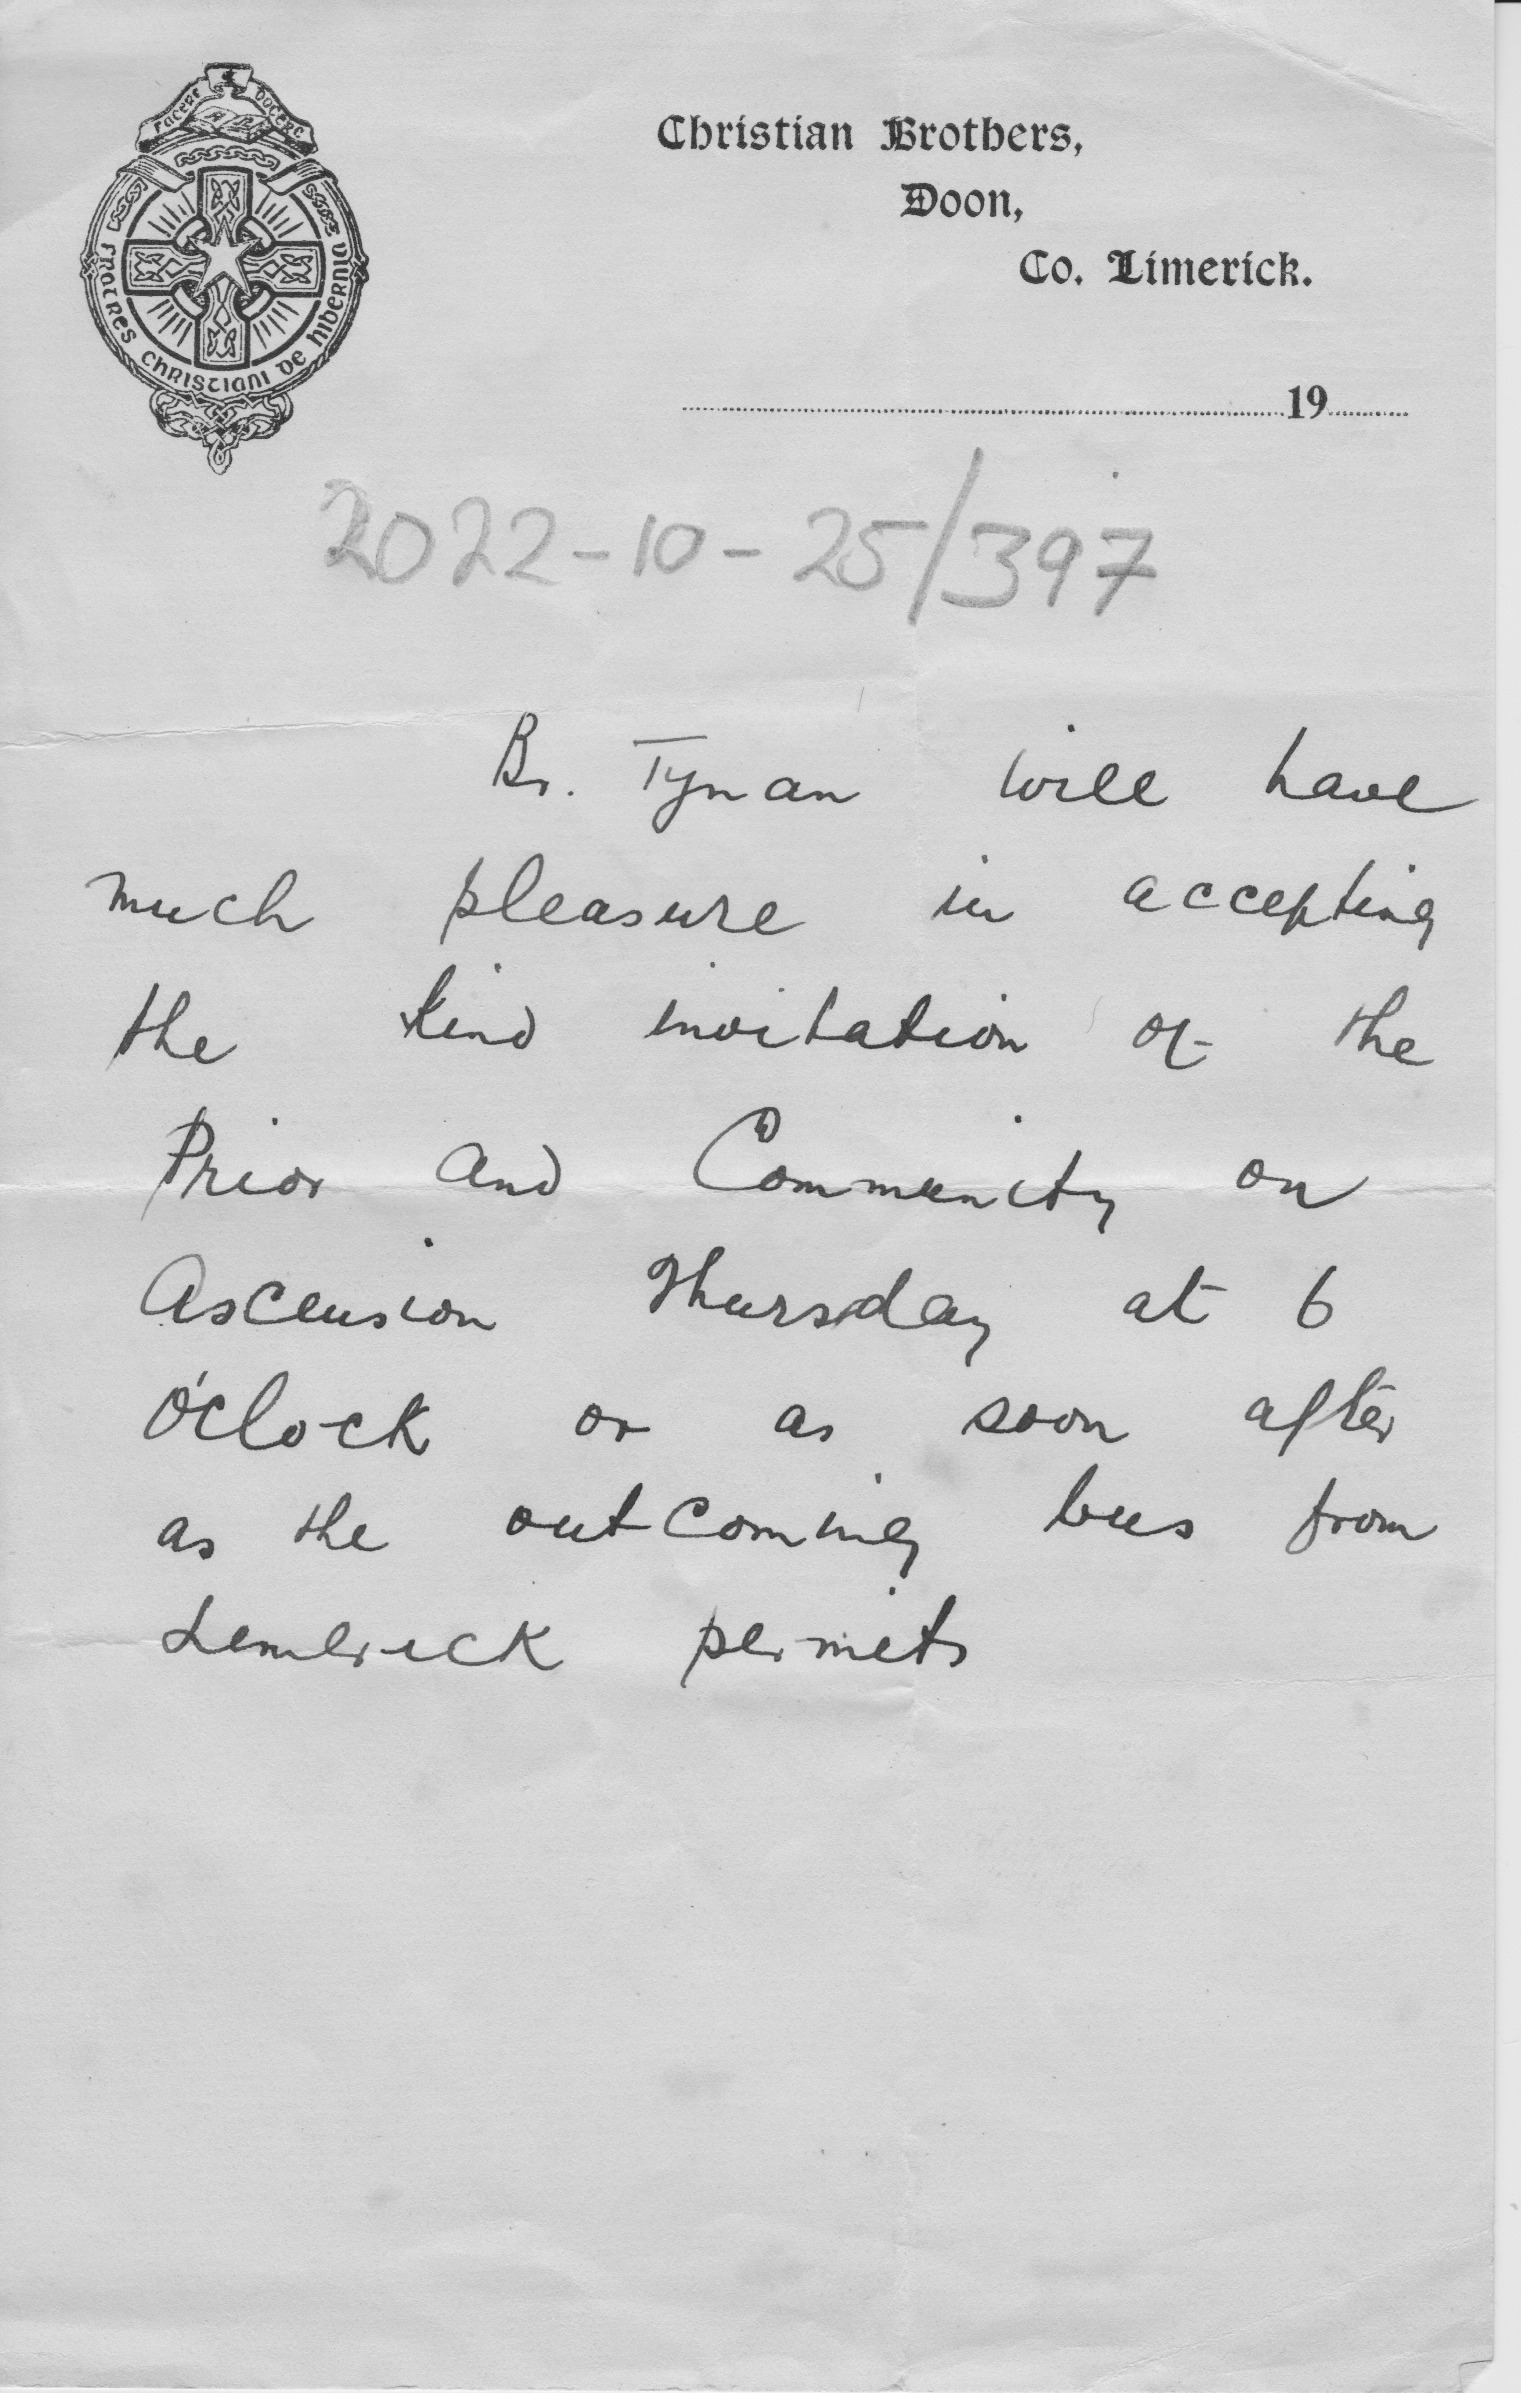 FACERE ET DOCERE
FRATRES CHRISTIANI DE HIBERNIA
Christian Brothers,
Doon,
Co. Limerick.
19
2022-10-25/397
Br. Tynan will have
much pleasure in accepting
the kind invitation of the
Prior and Community on
Ascension Thursday at 6
O'Clock or as soon after
as the outcoming bus from
Limerick permits